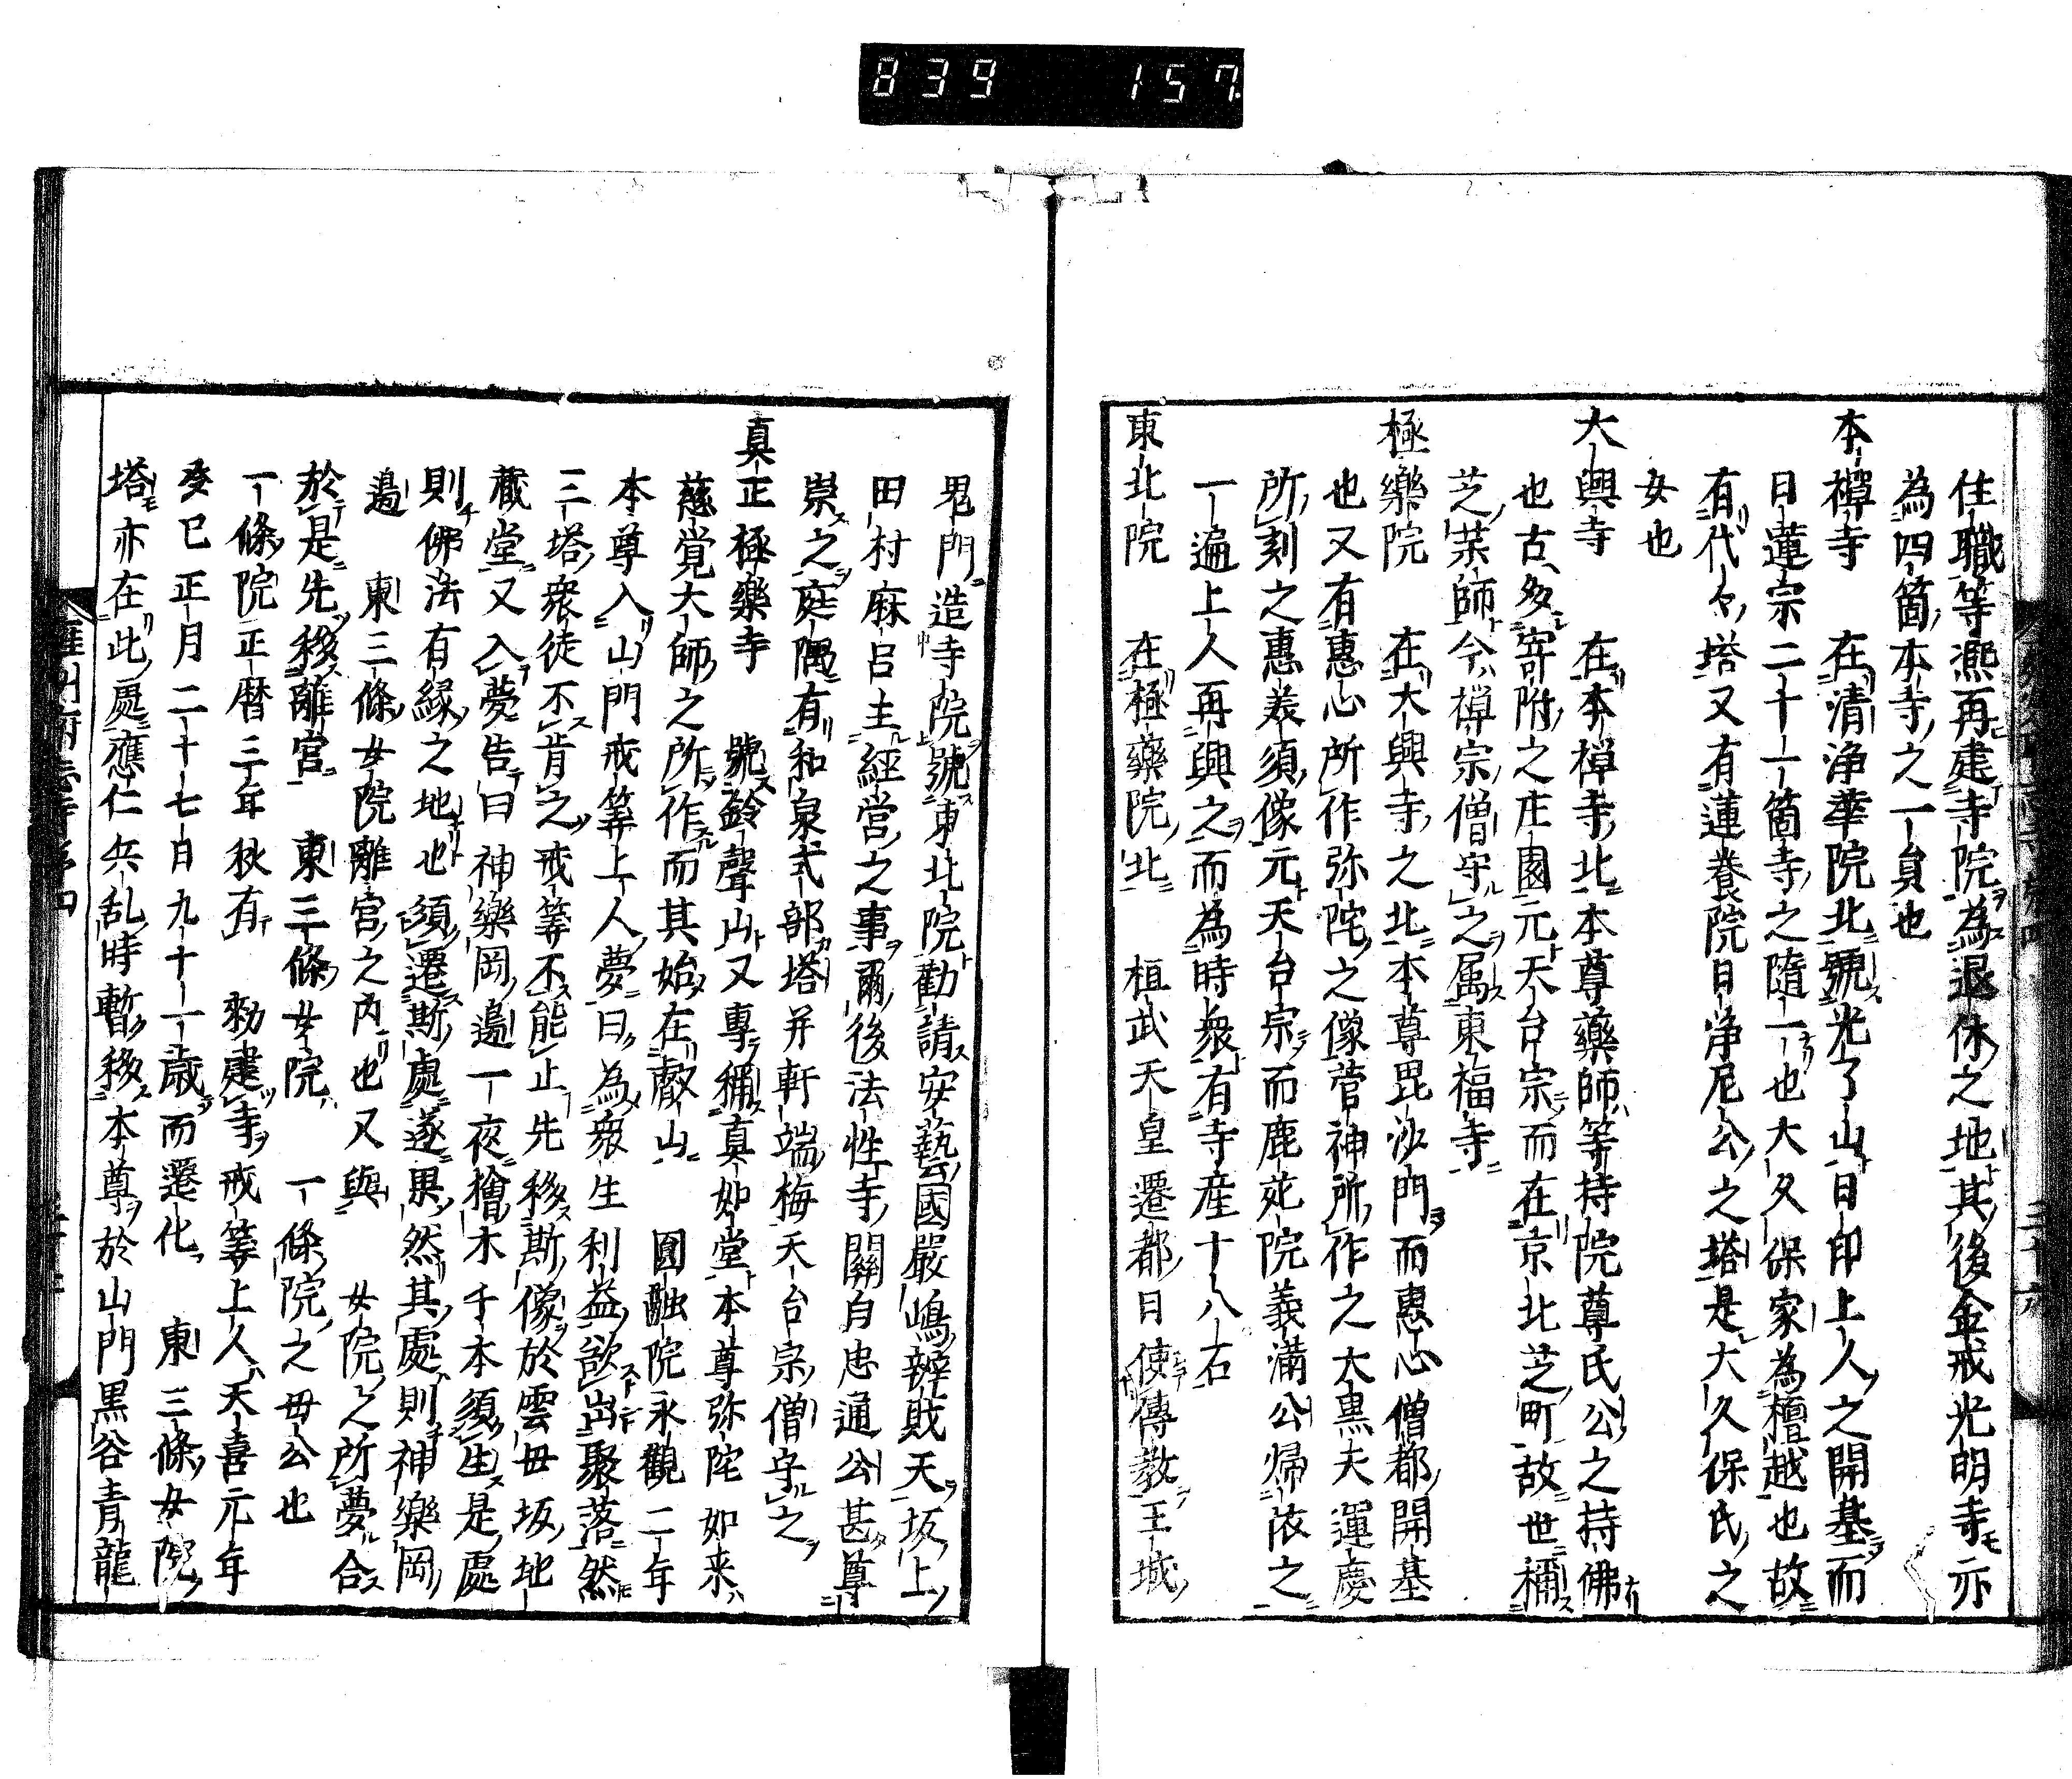 839 157
住職等熈再建寺院為退休之地其後金戒光明寺亦
為四箇本寺之一員也
本禪寺 在清淨華院北號光了山日印上人之開基而
日蓮宗二十一箇寺之隨一也大久保家為檀越也故
有代々塔又有蓮養院日淨尼公之塔是大久保氏之
女也
大興寺 在本禅寺北本尊藥師等持院尊氏公之持佛
也古多寄附之庄園元天台宗而在京北芝町故世稱
芝藥師今禪宗僧守之属東福寺
極樂院 在大興寺之北本尊毘沙門而惠心僧都開基
也又有惠心所作弥陀之像菅神所作之大黒天運慶
所刻之惠美須像元天台宗而鹿苑院義満公帰依之
一遍上人再興之而為時衆有寺産十八石
東北院 在極藥院北 桓武天皇遷都日使傳教王城
鬼門造寺院號東北院勸請安藝國嚴嶋辨財天坂上
田村麻呂主經営之事爾後法性寺關白忠通公甚尊
崇之庭隅有和泉式部塔并軒端梅天台宗僧守之
真正極樂寺 號鈴聲山又專稱真如堂本尊弥陀如来
慈覚大師之所作而其始在叡山 圓融院永觀二年
本尊入山門戒筭上人夢曰為衆生利益欲出聚落然
三塔衆徒不肯之戒筭不能止先移斯像於雲母坂地
藏堂又入夢告曰神樂岡邉一夜檜木千本須生是處
則佛法有縁之地也須遷斯處遂果然其處則神樂岡
邉 東三條女院離宮之内也又與 女院之所夢合
於是先移離宮 東三條女院 一條院之母公也
一條院正暦三年秋有 勅建寺戒筭上人天喜元年
癸巳正月二十七日九十一歳而遷化 東三條女院
塔亦在此處應仁兵乱時暫移本尊於山門黒谷青龍